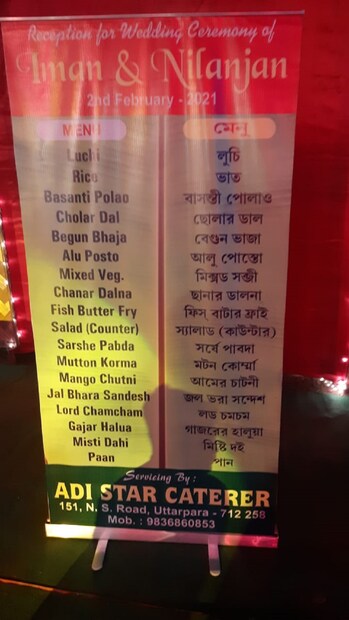 Reception for Wedding Ceremony of
Iman & Nilanjan
2nd February - 2021
MENU মেনু
Luchi লুচি
Rice ভাত
Basanti Polao বাসন্তী পোলাও
Cholar Dal ছোলার ডাল
Begun Bhaja বেগুন ভাজা
Alu Posto আলু পোস্তো
Mixed Veg. মিক্সড সব্জী
Chanar Dalna ছানার ডালনা
Fish Butter Fry ফিস্ বাটার ফ্রাই
Salad (Counter) স্যালাড (কাউন্টার)
Sarshe Pabda সর্ষে পাবদা
Mutton Korma মটন কোর্ম্মা
Mango Chutni আমের চাটনী
Jal Bhara Sandesh জল ভরা সন্দেশ
Lord Chamcham লর্ড চমচম
Gajar Halua গাজরের হালুয়া
Misti Dahi মিষ্টি দই
Paan পান
Servicing By :
ADI STAR CATERER
151, N. S. Road, Uttarpara - 712 258
Mob. : 9836860853